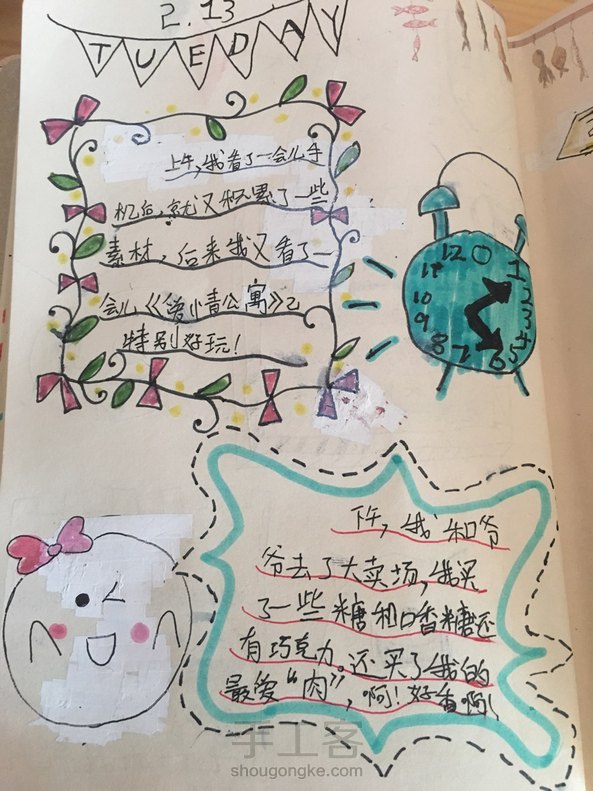 2.13
TUEDAY
上午,我看了一会儿手
机后,就又积累了一些
素材,后来我又看了一
会儿《爱情公寓》2
特别好玩!
12
11
1
10
2
9
3
8
7
6
5
下午,我和爷
爷去了大卖场,我买
了一些糖和口香糖还
有巧克力。还买了我的
最爱“肉”,啊!好香啊!
手工客
shougongke.com